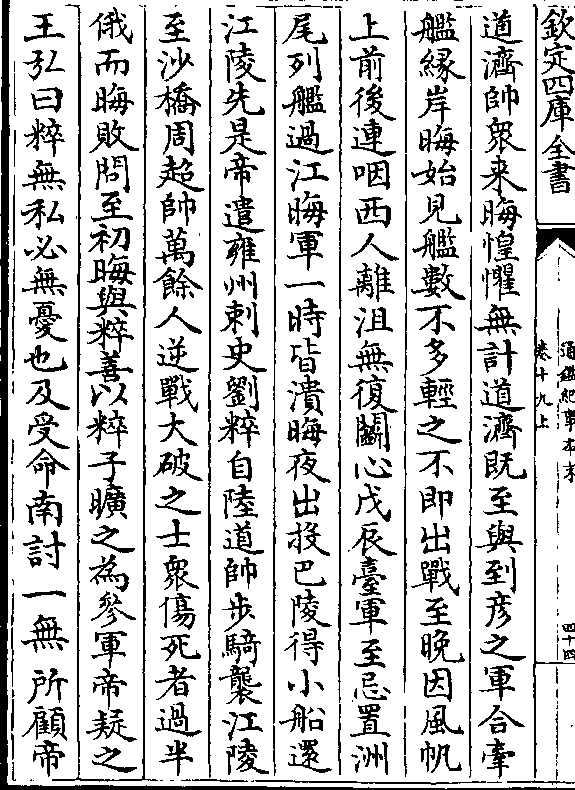 欽定四庫全書
通鑑紀事本末
卷十九上
四十四
道濟帥衆来晦惶懼無計道濟既至與到彦之軍合牽
艦縁岸晦始見艦數不多輕之不即出戰至晚因風帆
上前後連咽西人離沮無復鬭心戊辰臺軍至忌置洲
尾列艦過江晦軍一時皆潰晦夜出投巴陵得小船還
江陵先是帝遣雍州刺史劉粹自陸道帥步騎襲江陵
至沙橋周超帥萬餘人逆戰大破之士衆傷死者過半
俄而晦敗問至初晦與粹善以粹子曠之為參軍帝疑之
王弘曰粹無私必無憂也及受命南討一無所顧帝